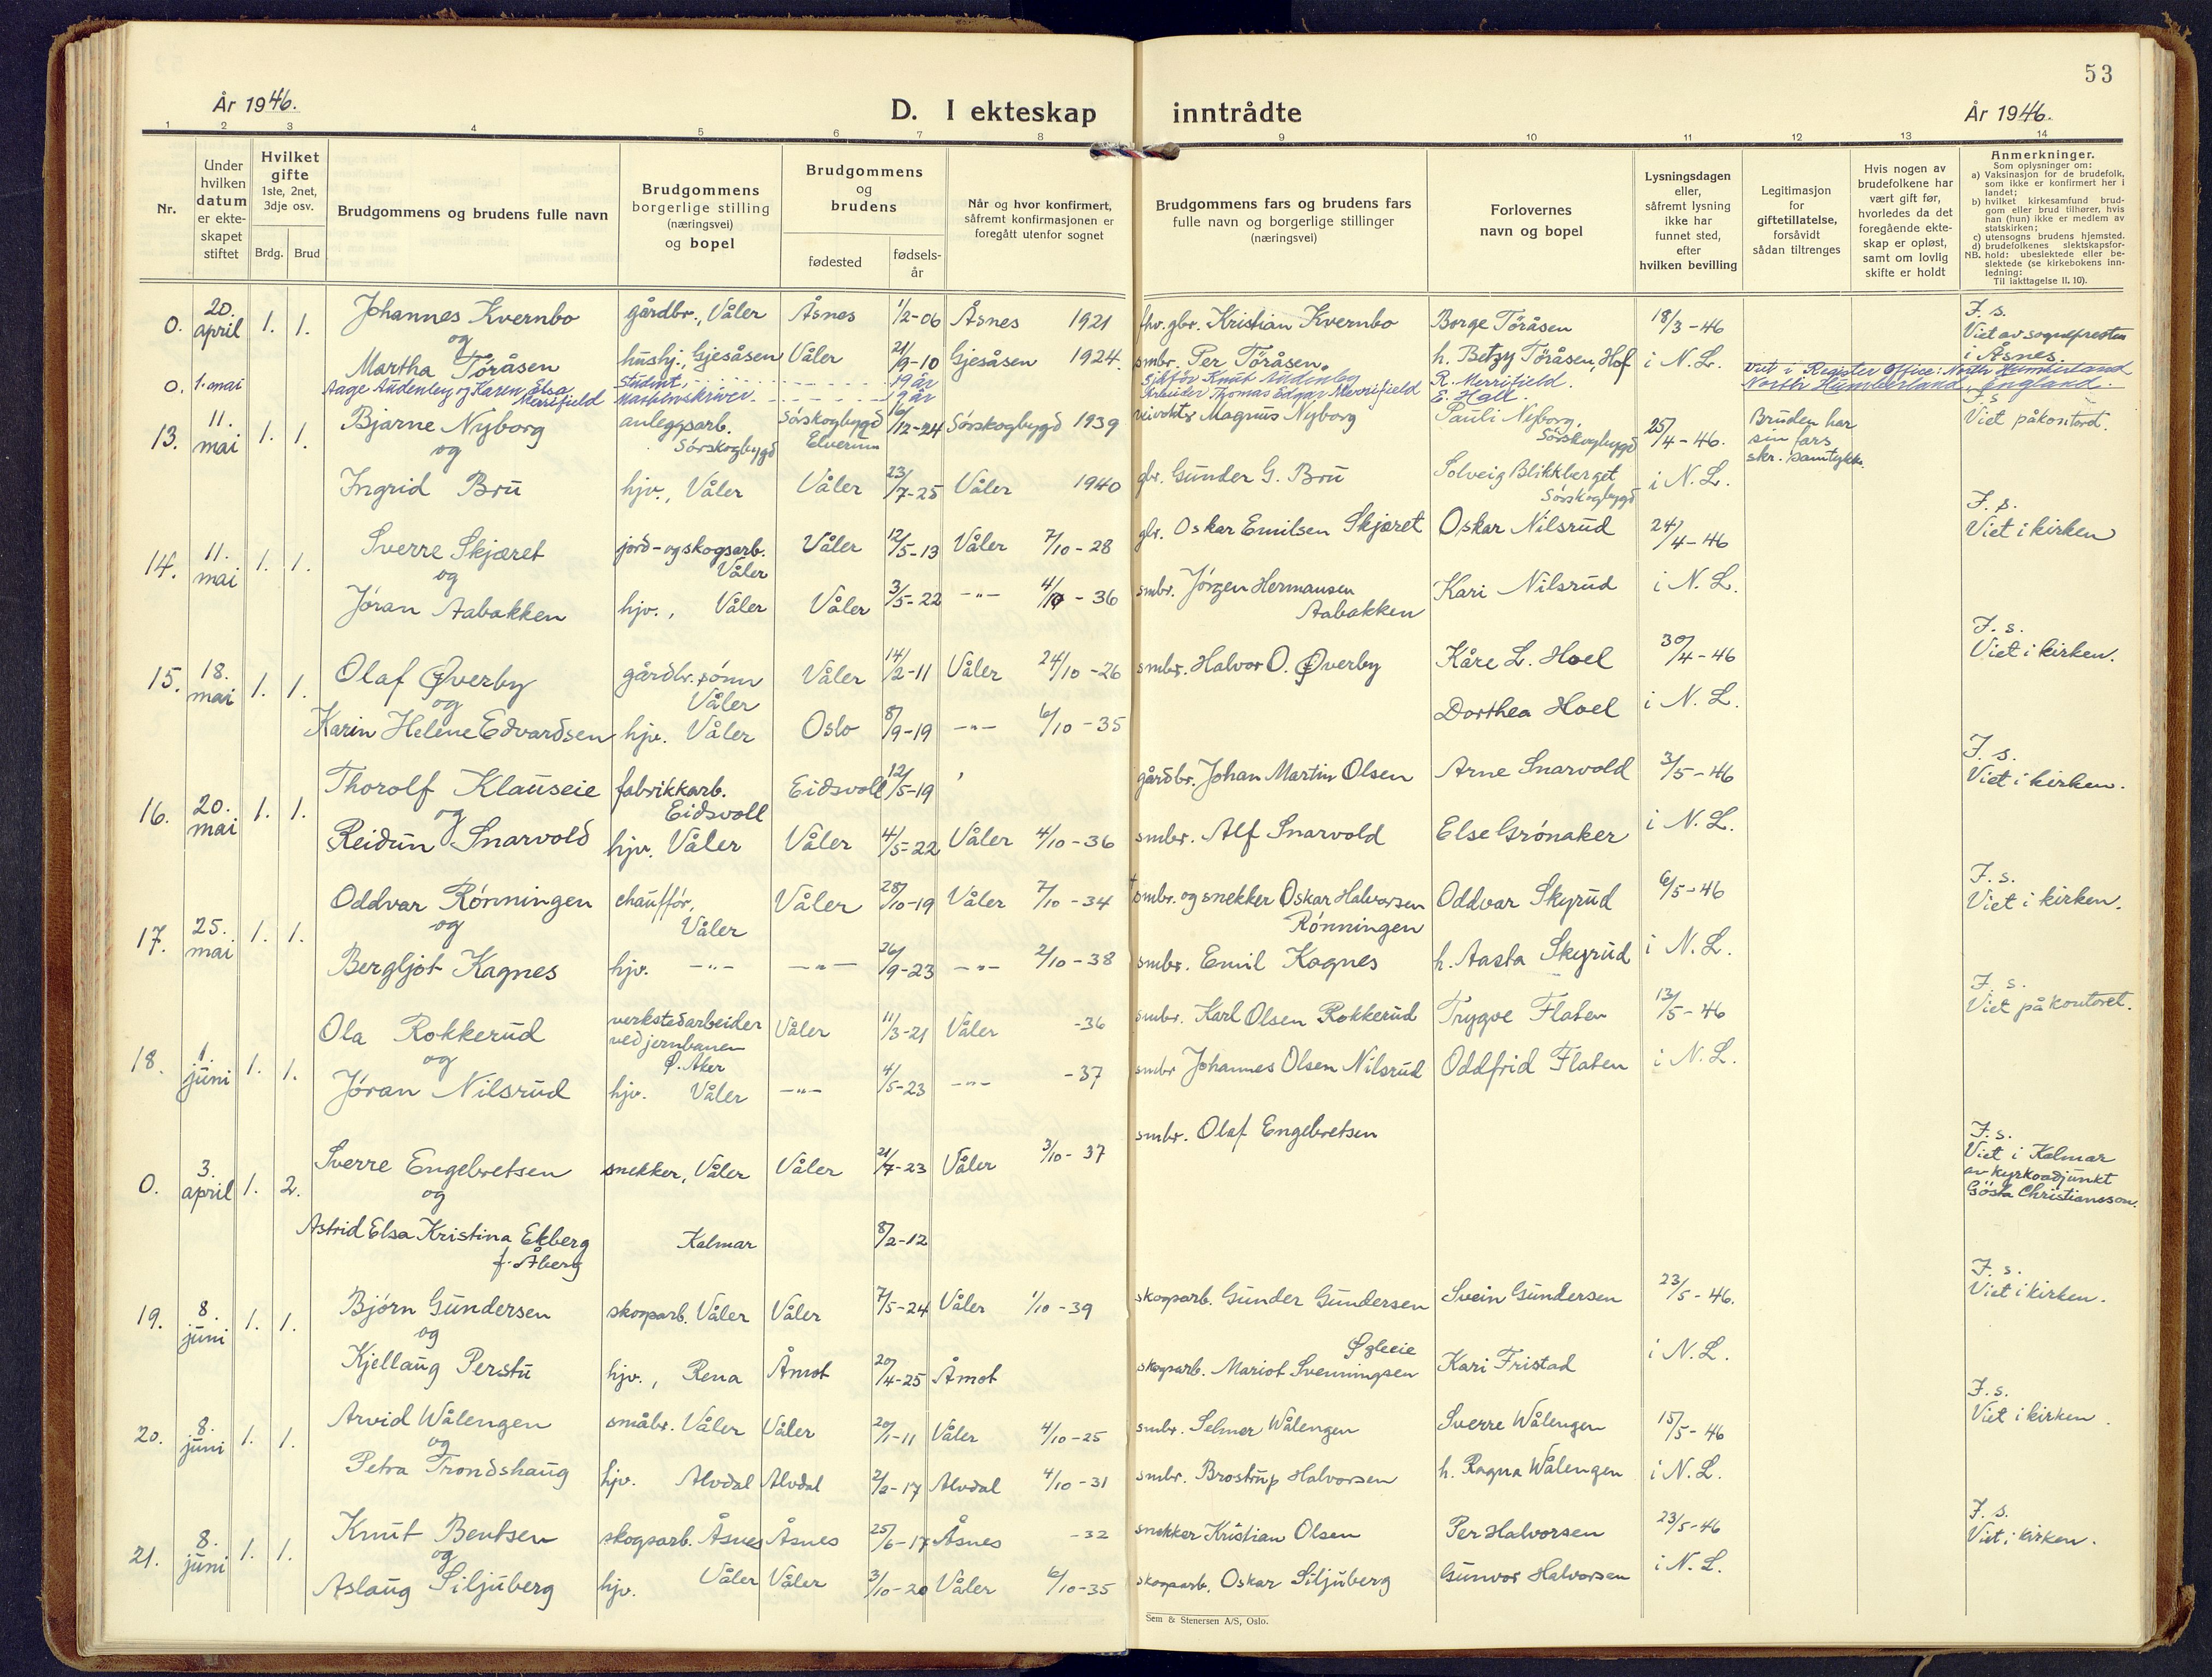 53
År 1946.
D. I ekteskap inntrådte
År 1946.
1 2 3 4 5 6 7 8 9 10 11 12 13 14
Nr.
Under
hvilken
datum
er ekte-
skapet
stiftet
Hvilket
gifte
1ste, 2net,
3dje osv.
Brdg. Brud
Brudgommens og brudens fulle navn
Brudgommens
borgerlige stilling
(næringsvei)
og bopel
Brudgommens
og
brudens
fødested
fødsels-
år
Når og hvor konfirmert,
såfremt konfirmasjonen er
foregått utenfor sognet
Brudgommens fars og brudens fars
fulle navn og borgerlige stillinger
(næringsvei)
Forlovernes
navn og bopel
Lysningsdagen
eller,
såfremt lysning
ikke har
funnet sted,
efter
hvilken bevilling
Legitimasjon
for
giftetillatelse,
forsåvidt
sådan tiltrenges
Hvis nogen av
brudefolkene har
vært gift før,
hvorledes da det
foregående ekte-
skap er opløst,
samt om lovlig
skifte er holdt
Anmerkninger.
Som oplysninger om:
a) Vaksinasjon for de brudefolk,
som ikke er konfirmert her i
landet;
b) hvilket kirkesamfund brud-
gom eller brud tilhører, hvis
han (hun) ikke er medlem av
statskirken;
c) utensogns brudens hjemsted.
d) brudefolkenes slektskapsfor-
hold: ubeslektede eller be-
NB. slektede (se kirkebokens inn-
ledning:
Til iakttagelse II. 10).
0. 20. april 1. 1. Johannes Kvernbo gårdbr., Våler Åsnes 1/2-06 Åsnes 1921 fhv. gbr. Kristian Kvernbo Borge Töråsen 18/3-46 F. s.
og Viet av sognepresten
Martha Töråsen hushj., Gjesåsen Våler 21/9-10 Gjesåsen 1924. smbr. Per Töråsen. h. Betzy Töråsen, Hof i N. L. i Åsnes.
0. 1. mai Aage Audenby og Karen Elsa Merrifield student, 19 år Sjåfør Knut Audenby R. Merrifield. Viet i Register Office: North Humberland
Maskinskriver 19 år Arbeider Thomas Edgar Merrifield E. Hall. North Humberland, England.
13. 11. mai 1. 1. Bjarne Nyborg anleggsarb. Sørskogbygd Sørskogbygd Elverum 16/12-24 Sørskogbygd 1939 veivokter Magnus Nyborg Pauli Nyborg, Sørskogbygd 25/4-46. Bruden har sin fars skr. samtykke. F. s. Viet på kontord.
og
Ingrid Bru hjv., Våler Våler 23/7-25 Våler 1940 gbr. Gunder G. Bru Solveig Blikkberget Sørskogbygd i N. L.
14. 11. mai 1. 1. Sverre Skjæret jord- og skogsarb. Våler Våler 12/5-13 Våler 7/10-28 gbr. Oskar Emilsen Skjæret Oskar Nilsrud 24/4-46 F. s. Viet i kirken
og
Jøran Aabakken hjv., Våler Våler 3/5-22 -"- 4/10-36 smbr. Jørgen Hermansen Aabakken Kari Nilsrud i N. L.
15. 18. mai 1. 1. Olaf Øverby gårdbr. sønn Våler Våler 14/2-11 Våler 24/10-26 smbr. Halvor O. Øverby Kåre L. Hoel 30/4-46 F. s. Viet i kirken.
og
Karin Helene Edvardsen hjv. Våler Oslo 8/9-19 -"- 6/10-35 Dorthea Hoel i N. L.
16. 20. mai 1. 1. Thorolf Klauseie fabrikkarb. Eidsvoll Eidsvoll 12/5-19 gårdbr. Johan Martin Olsen Arne Snarvold 3/5-46 F. s. Viet i kirken.
og
Reidun Snarvold hjv. Våler Våler 4/5-22 Våler 4/10-36 smbr. Alf Snarvold Else Grønaker i N. L.
17. 25. mai 1. 1. Oddvar Rønningen chauffør, Våler Våler 28/10-19 Våler 7/10-34 † smbr. og snekker Oskar Halvorsen Rønningen Oddvar Skyrud 6/5-46 F. s. Viet i kirken.
og
Bergljot Kagnes hjv. -"- -"- 26/9-23 -"- 2/10-38 smbr. Emil Kagnes h. Aasta Skyrud i N. L.
18. 1. juni 1. 1. Ola Rokkerud verkstedarbeider ved jernbanen Ø. Aker Våler 11/3-21 Våler -36 smbr. Karl Olsen Rokkerud Trygve Flaten 13/5-46 F. s. Viet på kontoret.
og
Jøran Nilsrud hjv. Våler -"- 4/5-23 -"- -37 smbr Johannes Olsen Nilsrud Oddfrid Flaten i N. L.
0. 3. april 1. 2. Sverre Engebretsen snekker, Våler Våler 21/7-23 Våler 3/10-37 smbr. Olaf Engebretsen F. s. Viet i Kalmar av kyrkoadjunkt Gösta Christiansson.
og
Astrid Elsa Kristina Ekberg f. Åberg Kalmar 8/2-12
19. 8. juni 1. 1. Bjørn Gundersen skogsarb. Våler Våler 7/5-24 Våler 1/10-39 skogsarb. Gunder Gundersen Svein Gundersen 23/5-46. F. s. Viet i kirken.
og
Kjellaug Perstu hjv., Rena Åmot 20/4-25 Åmot skogsarb. Mariot Svenningsen Kari Fristad i N. L.
20. 8. juni 1. 1. Arvid Wålengen småbr. Våler Våler 20/1-11 Våler 4/10-25 smbr. Selmer Wålengen Sverre Wålengen 15/5-46 F. s. Viet i kirken.
og
Petra Trondshaug hjv. Alvdal Alvdal 2/2-17 Alvdal 4/10-31 smbr. Brostrup Halvorsen h. Ragna Wålengen i N. L.
21. 8. juni 1. 1. Knut Bentsen skogsarb. Åsnes Åsnes 25/6-17 Åsnes -32 snekker Kristian Olsen Per Halvorsen 23/5-46 F. s. Viet i kirken.
og
Aslaug Siljuberg hjv. Våler Våler 3/10-20 Våler 6/10-35 skogsarb. Oskar Siljuberg Gunvor Halvorsen i N. L.
Sem & Stenersen A/S, Oslo.